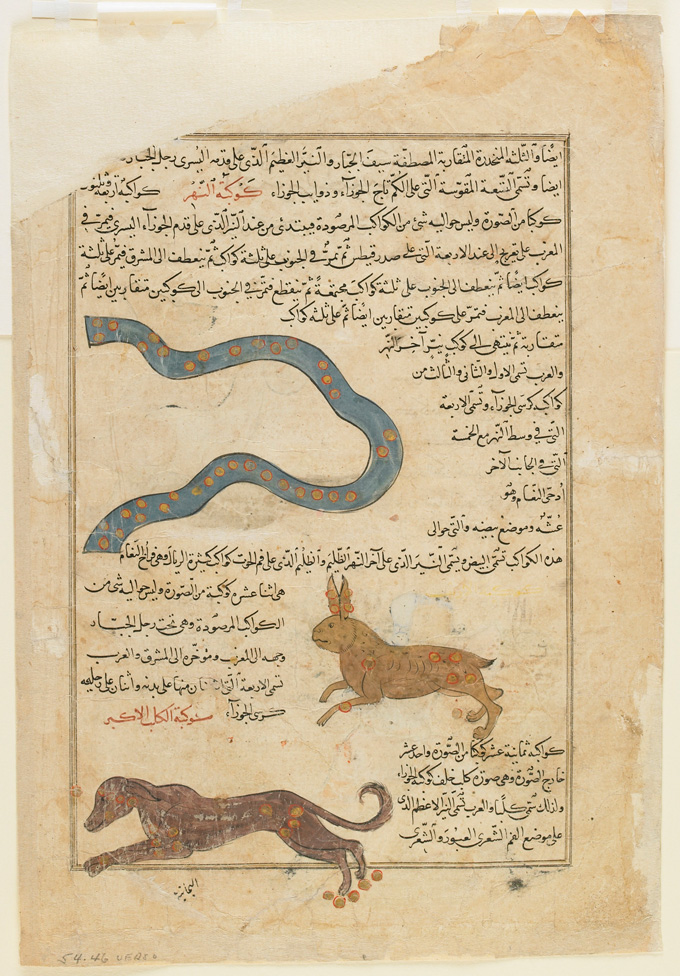 ايضا والثلثة المنحدرة المتقاربة المصطفة سيف الجبار والنير العظيم الذى على قدمه اليسرى رجل الجبار
ايضا وتسمى التسعة المقوسة التى على الكم تاج الجوزاء وذوايب الجوزاء كوكبة النهر كواكبه اربعة وثلثون
كوكبا من الصورة وليس حواليه شئ من الكواكب المرصودة يبتدئ من عند النير الذى على قدم الجوزاء اليسرى فيمر فى
المغرب على تعريج الى عند الاربعة التى على صدر قيطس ثم يمر فى الجنوب على ثلثة كواكب ثم ينعطف الى المشرق فيمر على ثلثة
كواكب ايضا ثم ينعطف الى الجنوب على ثلثة كواكب مجتمعة ثم ينقطع فيمر فى الجنوب الى كوكبين متقاربين ايضا ثم
ينعطف الى المغرب فيمر على كوكبين متقاربين ايضا ثم على ثلثة كواكب
متقاربة ثم ينتهى الى كوكب نير آخر النهر
والعرب تسمى الاول والثانى والثالث من
كواكبه كرسى الجوزاء وتسمى الاربعة
التى فى وسط النهر مع الخمسة
التى فى الجانب الآخر
ادحى النعام وهو
عشه وموضع بيضه والتى حوالى
هذه الكواكب تسمى البيض ويسمى النير الذى على آخر النهر الظليم والظليم الذى على فم الحوت كواكب كثيرة الريال وهى فراخ النعام
هى اثنا عشر كوكبة من الصورة وليس حواليه شئ من
الكواكب المرصودة وهى تحت رجل الجبار
وجهه الى المغرب ومؤخره الى المشرق والعرب
تسمى الاربعة التى اثنان منها على بدنه واثنان على رجليه
كرسى الجوزاء كوكبة الكلب الاكبر
كواكبه ثمانية عشر كوكبا من الصورة واحد عشر
خارج الصورة وهى صورة كلب خلف كوكبة الجوزاء
ولذلك سمى كلبا والعرب تسمى النير الاعظم الذى
على موضع الفم الشعرى العبور والشعرى
اليمانية
54.46 verso